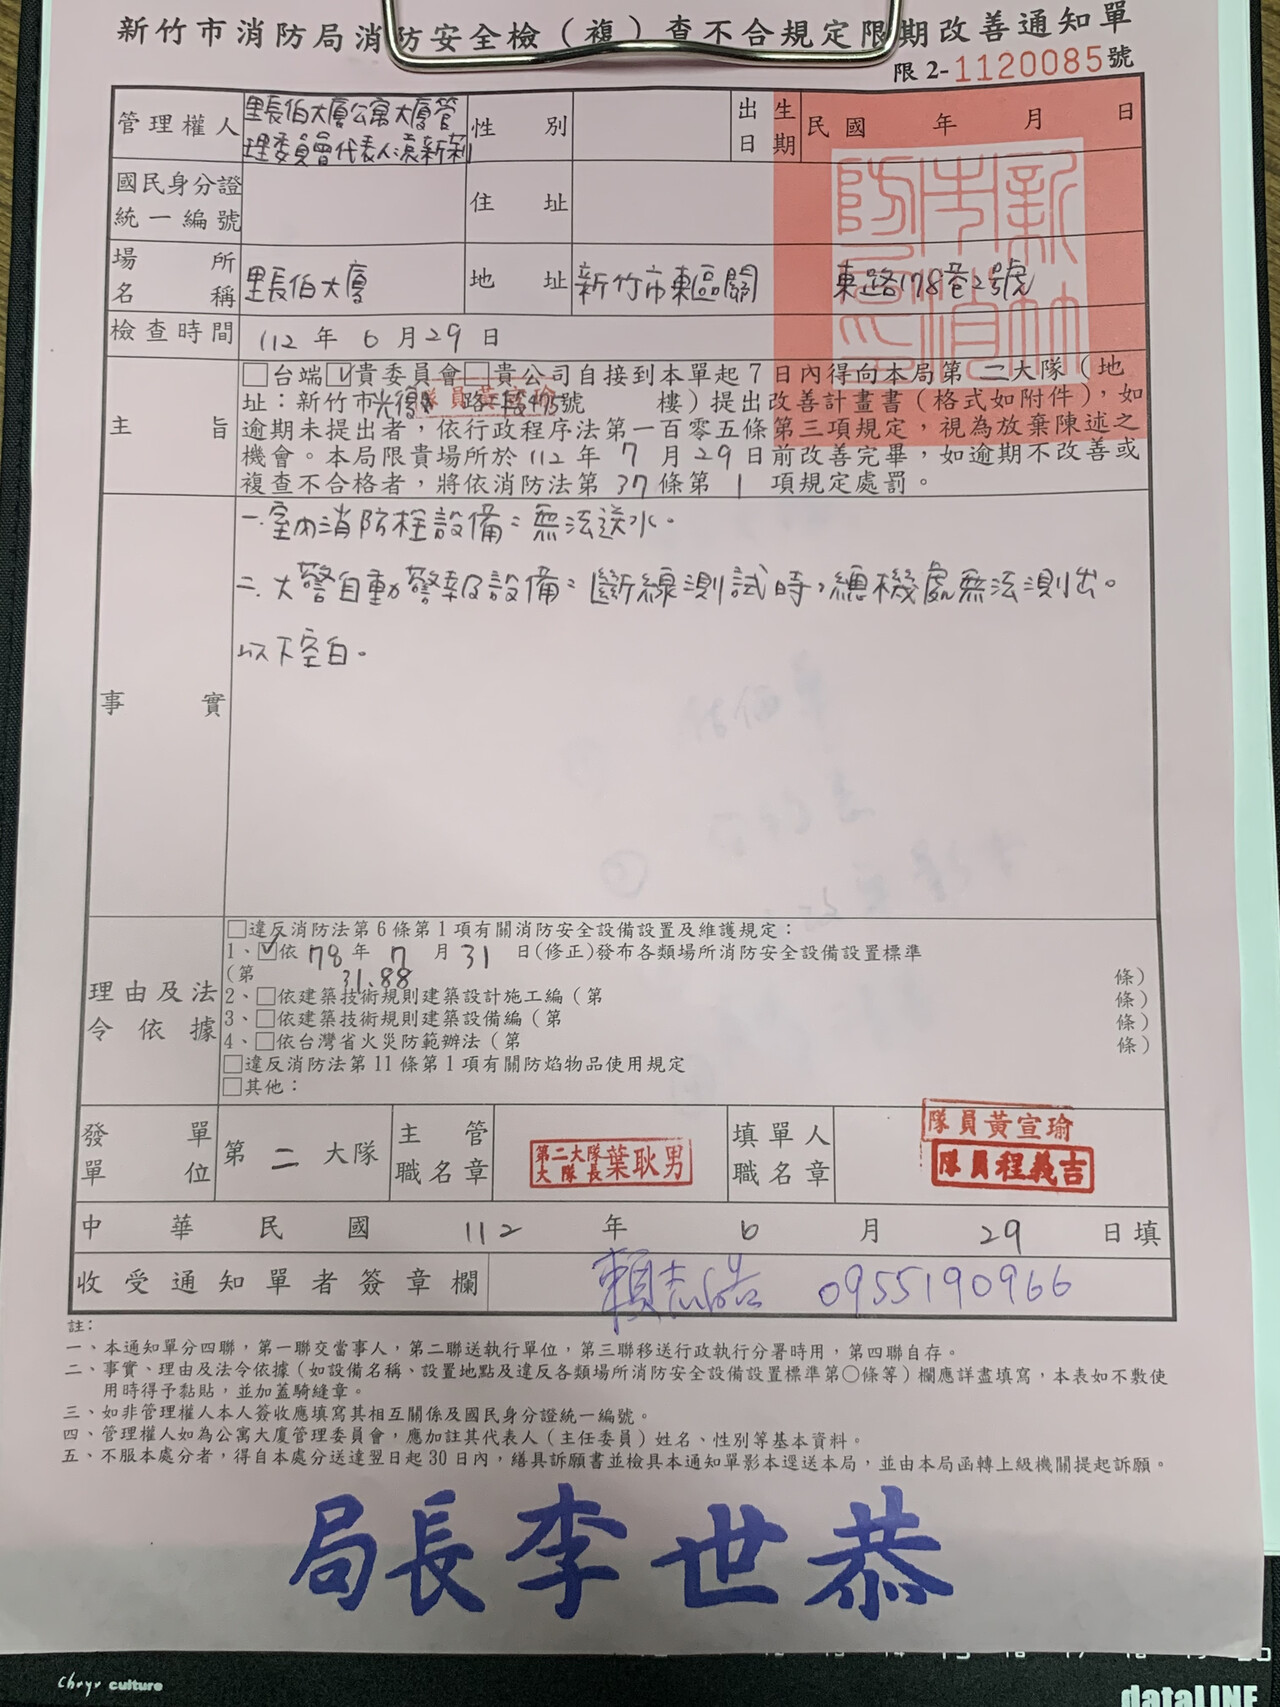 新竹市消防局消防安全檢（複）查不合規定限期改善通知單
限2-1120085號
管理權人 里長伯大廈公寓大廈管理委員會代表人:袁新莉 性別 出生日期 民國 年 月 日
國民身分證統一編號 住址
場所名稱 里長伯大廈 地址 新竹市東區關東路178巷2號
檢查時間 112年6月29日
主旨
□台端☑貴委員會□貴公司自接到本單起7日內得向本局第二大隊（地
址：新竹市光復路二段475號 樓）提出改善計畫書（格式如附件），如
逾期未提出者，依行政程序法第一百零五條第三項規定，視為放棄陳述之
機會。本局限貴場所於112年7月29日前改善完畢，如逾期不改善或
複查不合格者，將依消防法第37條第1項規定處罰。
事實
一.室內消防栓設備：無法送水。
二.火警自動警報設備：斷線測試時，總機處無法測出。
以下空白。
理由及法令依據
□違反消防法第6條第1項有關消防安全設備設置及維護規定：
1、☑依78年7月31日(修正)發布各類場所消防安全設備設置標準
(第 31.88 條)
2、□依建築技術規則建築設計施工編（第 條）
3、□依建築技術規則建築設備編（第 條）
4、□依台灣省火災防範辦法（第 條）
□違反消防法第11條第1項有關防焰物品使用規定
□其他：
發單單位 第二大隊 主管職名章 第二大隊大隊長葉耿男 填單人職名章 隊員黃宣瑜
隊員程義吉
中華民國 112 年 6 月 29 日填
收受通知單者簽章欄 賴志浩 0955190966
註：
一、本通知單分四聯，第一聯交當事人，第二聯送執行單位，第三聯移送行政執行分署時用，第四聯自存。
二、事實、理由及法令依據（如設備名稱、設置地點及違反各類場所消防安全設備設置標準第○條等）欄應詳盡填寫，本表如不敷使
用時得予黏貼，並加蓋騎縫章。
三、如非管理權人本人簽收應填寫其相互關係及國民身分證統一編號。
四、管理權人如為公寓大廈管理委員會，應加註其代表人（主任委員）姓名、性別等基本資料。
五、不服本處分者，得自本處分送達翌日起30日內，繕具訴願書並檢具本通知單影本逕送本局，並由本局函轉上級機關提起訴願。
局長李世恭
choyo culture
dataLINE